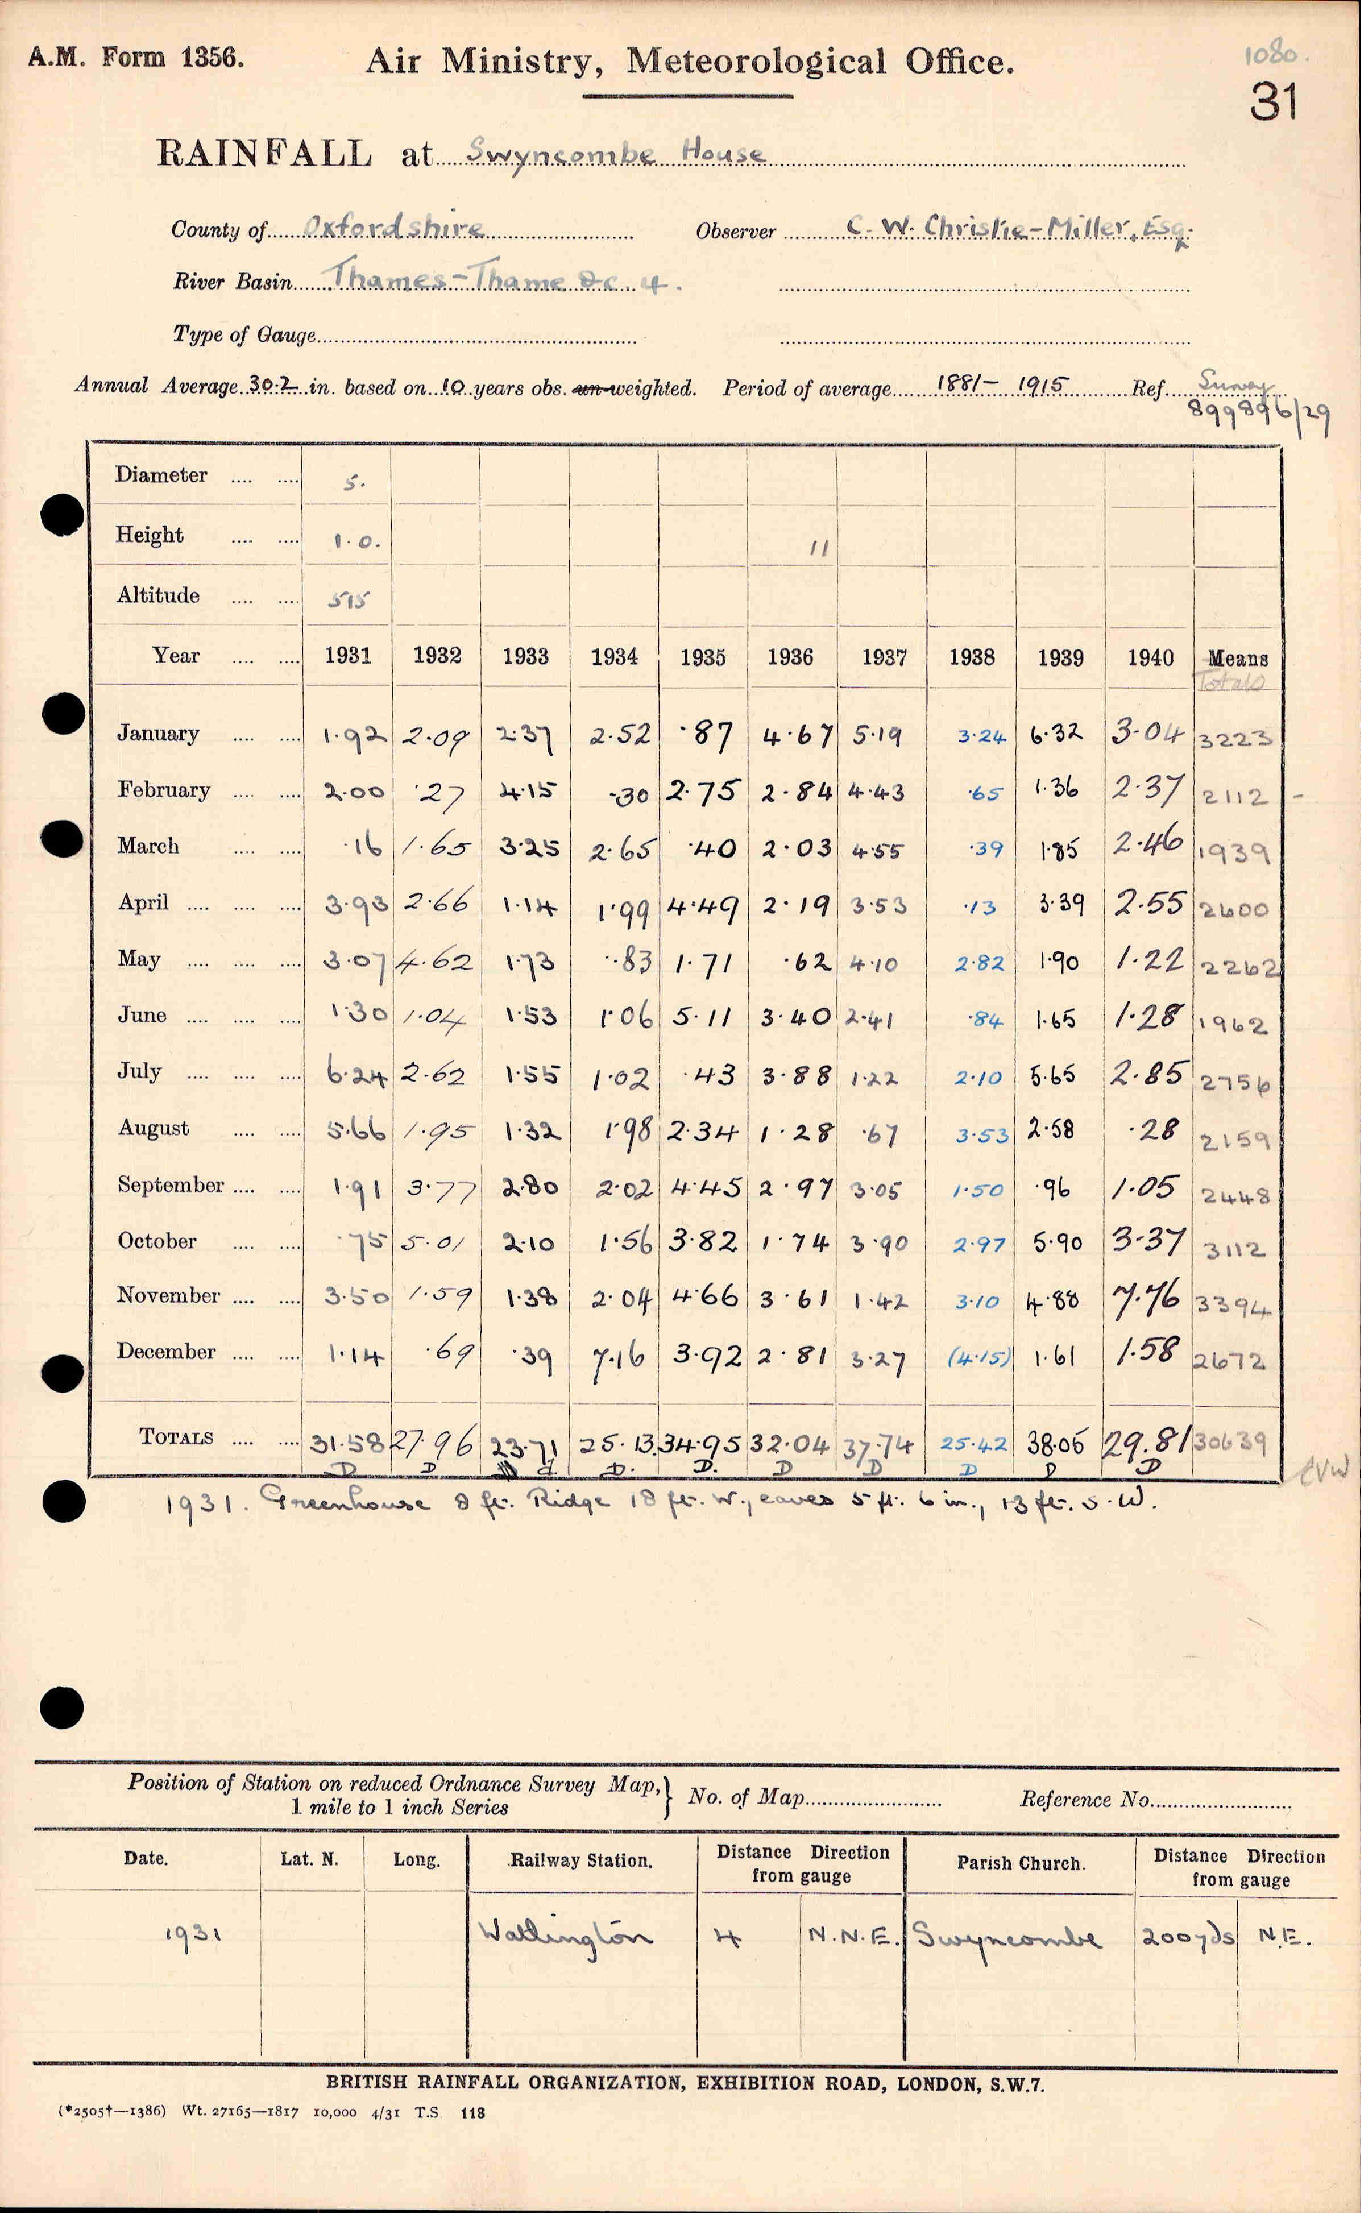 A.M. Form 1356. Air Ministry, Meteorological Office. 1080.
31
RAINFALL at Swyncombe House
County of Oxfordshire Observer C. W. Christie-Miller, Esq.
River Basin Thames-Thame &c. 4.
Type of Gauge
Annual Average 30.2 in. based on 10 years obs. un-weighted. Period of average 1881- 1915 Ref. Survey
899896/29
Diameter 5.
Height 1.0. 11
Altitude 515
Year 1931 1932 1933 1934 1935 1936 1937 1938 1939 1940 Means
Totals
January 1.92 2.09 2.37 2.52 .87 4.67 5.19 3.24 6.32 3.04 3223
February 2.00 .27 4.15 .30 2.75 2.84 4.43 .65 1.36 2.37 2112 -
March .16 1.65 3.25 2.65 .40 2.03 4.55 .39 1.85 2.46 1939
April 3.93 2.66 1.14 1.99 4.49 2.19 3.53 .13 3.39 2.55 2600
May 3.07 4.62 1.73 .83 1.71 .62 4.10 2.82 1.90 1.22 2262
June 1.30 1.04 1.53 1.06 5.11 3.40 2.41 .84 1.65 1.28 1962
July 6.24 2.62 1.55 1.02 .43 3.88 1.22 2.10 5.65 2.85 2756
August 5.66 1.95 1.32 1.98 2.34 1.28 .67 3.53 2.58 .28 2159
September 1.91 3.77 2.80 2.02 4.45 2.97 3.05 1.50 .96 1.05 2448
October .75 5.01 2.10 1.56 3.82 1.74 3.90 2.97 5.90 3.37 3112
November 3.50 1.59 1.38 2.04 4.66 3.61 1.42 3.10 4.88 7.76 3394
December 1.14 .69 .39 7.16 3.92 2.81 3.27 (4.15) 1.61 1.58 2672
TOTALS 31.58 27.96 23.71 25.13 34.95 32.04 37.74 25.42 38.05 29.81 30639
D D d D. D. D D D D D
1931. Greenhouse 8 ft. Ridge 18 ft. W., eaves 5 ft. 6 in., 13 ft. S.W.
Position of Station on reduced Ordnance Survey Map, } No. of Map Reference No.
1 mile to 1 inch Series
Date. Lat. N. Long. Railway Station. Distance Direction Parish Church. Distance Direction
from gauge from gauge
1931 Watlington 4 N.N.E. Swyncombe 200yds N.E.
BRITISH RAINFALL ORGANIZATION, EXHIBITION ROAD, LONDON, S.W.7.
(*2505†—1386) Wt. 27165—1817 10,000 4/31 T.S 118